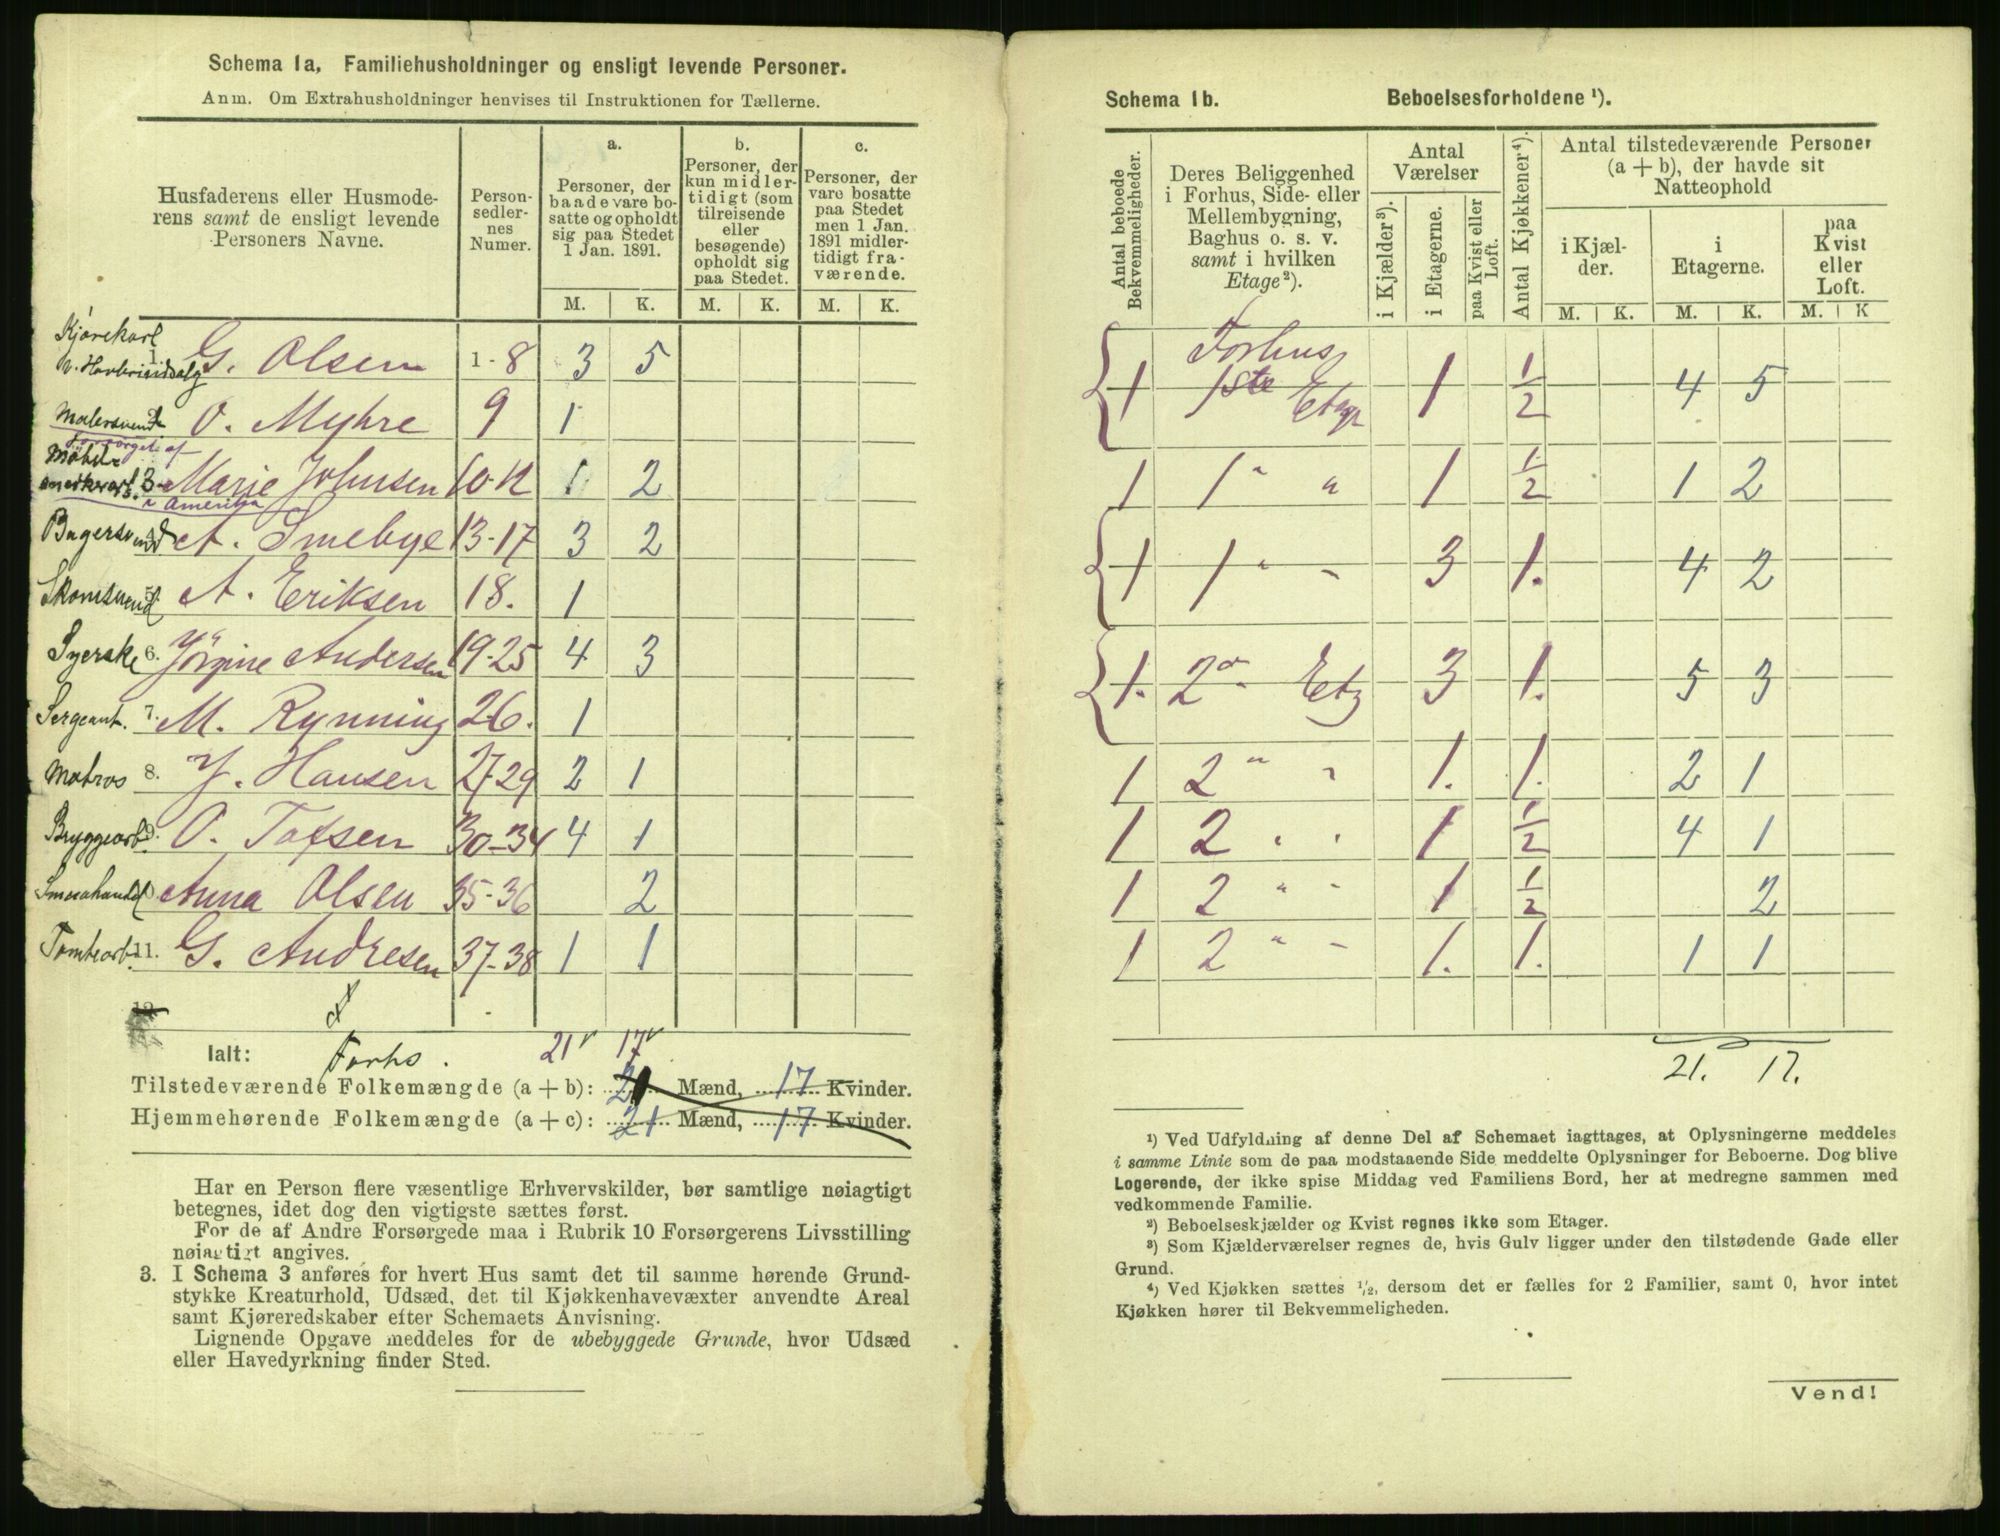 Schema 1a. Familiehusholdninger og ensligt levende Personer.
Anm. Om Extrahusholdninger henvises til Instruktionen for Tællerne.
Husfaderens eller Husmoderens samt de ensligt levende Personers Navne.
Personsedlernes Numer.
a. Personer, der baade vare bosatte og opholdt sig paa Stedet 1 Jan. 1891.
b. Personer, der kun midlertidigt (som tilreisende eller besøgende) opholdt sig paa Stedet.
c. Personer, der vare bosatte paa Stedet men 1 Jan. 1891 midlertidigt fraværende.
M. K. M. K. M. K.
Kjørekarl
1. G. Olsen 1-8 3 5
Malersvend 2. O. Myhre 9 1
forsørget af
Møbelsnedkerarb. 3. Marie Johnsen 10-12 1 2
i Amerika
Bagersvend 4. A. Smebye 13-17 3 2
Skomsvend 5. A. Eriksen 18. 1
Syerske 6. Jörgine Andersen 19-25 4 3
Sergeant. 7. M. Rynning 26. 1
Matros 8. J. Hansen 27-29 2 1
Bryggearb. 9. O. Tofsen 30-34 4 1
Smaahandel Anna Olsen 35-36 2
Tomtearb. 11. G. Andresen 37-38 1 1
12.
Ialt: Forhs. 21 17
Tilstedeværende Folkemængde (a + b): 21 Mænd, 17 Kvinder.
Hjemmehørende Folkemængde (a + c): 21 Mænd, 17 Kvinder.
Har en Person flere væsentlige Erhvervskilder, bør samtlige nøiagtigt
betegnes, idet dog den vigtigste sættes først.
For de af Andre Forsørgede maa i Rubrik 10 Forsørgerens Livsstilling
nøiagtigt angives.
3. I Schema 3 anføres for hvert Hus samt det til samme hørende Grund-
stykke Kreaturhold, Udsæd, det til Kjøkkenhavevæxter anvendte Areal
samt Kjøreredskaber efter Schemaets Anvisning.
Lignende Opgave meddeles for de ubebyggede Grunde, hvor Udsæd
eller Havedyrkning finder Sted.
Schema 1b. Beboelsesforholdene ¹).
Antal beboede Bekvemmeligheder.
Deres Beliggenhed i Forhus, Side- eller Mellembygning, Baghus o. s. v. samt i hvilken Etage ²).
Antal Værelser
i Kjælder ³).
i Etagerne.
paa Kvist eller Loft.
Antal Kjøkkener ⁴).
Antal tilstedeværende Personer (a + b), der havde sit Natteophold
i Kjælder.
i Etagerne.
paa Kvist eller Loft.
M. K. M. K. M. K
1 Forhus 1ste Etage 1 1/2 4 5
1 1 " " 1 1/2 1 2
1 1 " " 3 1. 4 2
1. 2 " Etg 3 1. 5 3
1 2 " " 1. 1. 2 1
1 2 " " 1 1/2 4 1
1 2 " " 1 1/2 2
1 2 " " 1. 1. 1 1
21. 17.
¹) Ved Udfyldning af denne Del af Schemaet iagttages, at Oplysningerne meddeles
i samme Linie som de paa modstaaende Side meddelte Oplysninger for Beboerne. Dog blive
Logerende, der ikke spise Middag ved Familiens Bord, her at medregne sammen med
vedkommende Familie.
²) Beboelseskjælder og Kvist regnes ikke som Etager.
³) Som Kjælderværelser regnes de, hvis Gulv ligger under den tilstødende Gade eller
Grund.
⁴) Ved Kjøkken sættes ½, dersom det er fælles for 2 Familier, samt 0, hvor intet
Kjøkken hører til Bekvemmeligheden.
Vend!